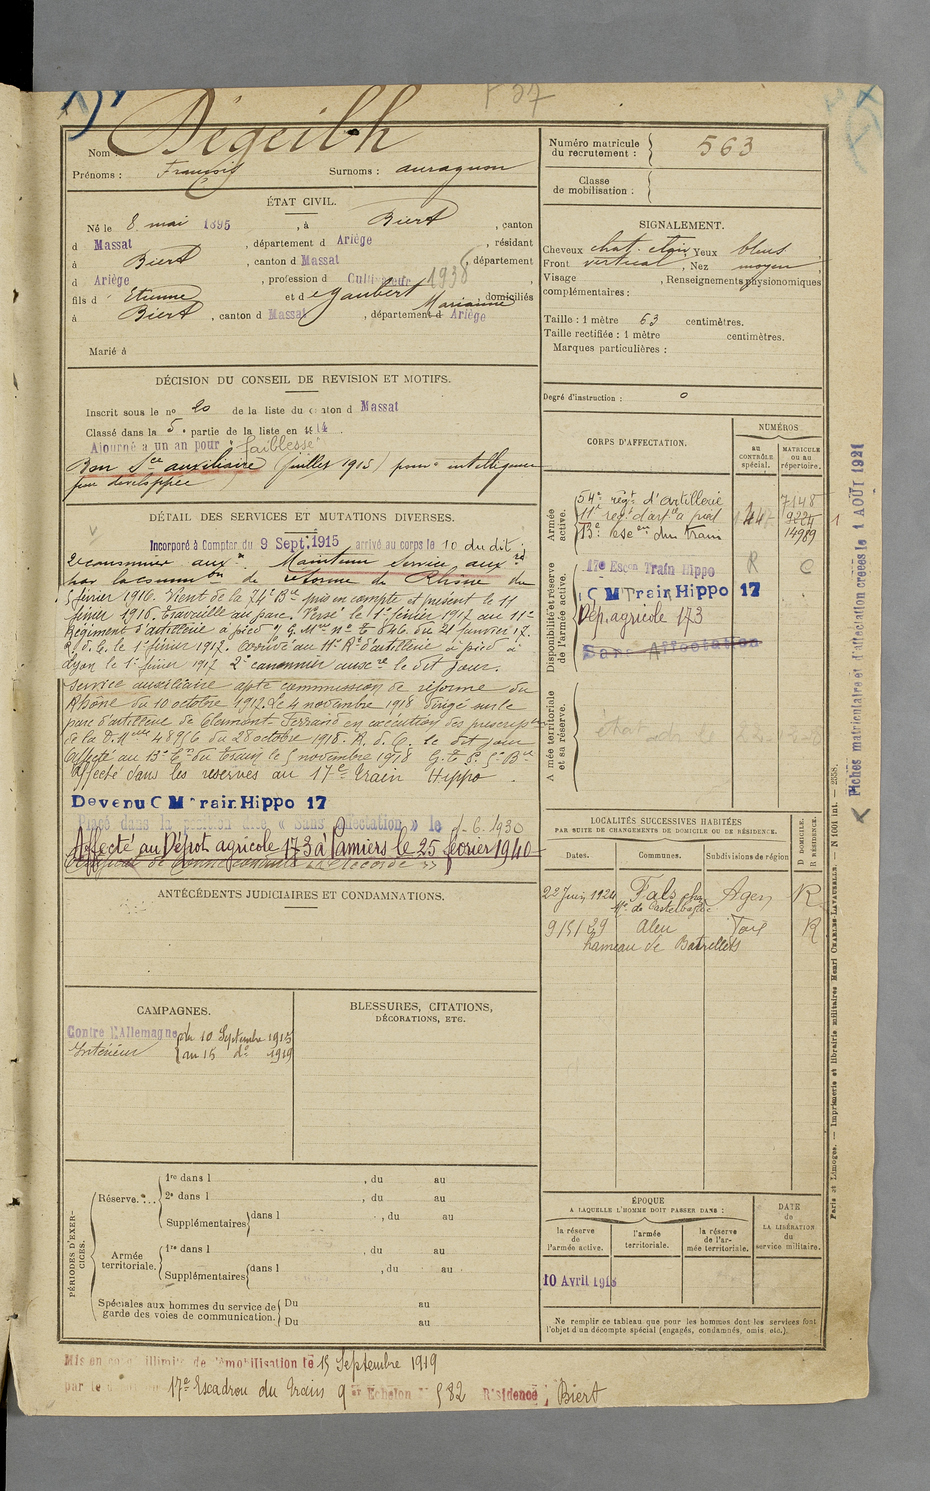 P 27
Nom : Dégeilh
Prénoms : François Surnoms : auragnon
ÉTAT CIVIL.
Né le 8 mai 1895, à Biert, canton
d Massat, département d Ariège, résidant
à Biert, canton d Massat, département
d Ariège, profession d Cultivateur 1938
fils d Etienne et d e Gaubert Marianne, domiciliés
à Biert, canton d Massat, département d Ariège
Marié à
DÉCISION DU CONSEIL DE REVISION ET MOTIFS.
Inscrit sous le no 20 de la liste du canton d Massat
Classé dans la 5e partie de la liste en 1914
Ajourné a un an pour "faiblesse"
Bon Sce auxiliaire (juillet 1915) pour intelligence
peu développée
DÉTAIL DES SERVICES ET MUTATIONS DIVERSES.
Incorporé à Compter du 9 Sept. 1915 arrivé au corps le 10 du dit
2e canonnier auxre. Maintenu service auxre
par la common de réforme du Rhône du
5 février 1916. Vient de la 24e Bie pris en compte et présent le 11
février 1916. Travaille au parc. Versé le 1er février 1917 au 11e
Régiment d'artillerie à pied G. Mre no du 21 janvier 17.
R. d. C. le 1er février 1917. Arrivé au 11e Rt d'artillerie à pied à
Lyon le 1er février 1917 2e canonnier auxre le dit jour.
Service auxiliaire apte commission de réforme du
Rhône du 10 octobre 1917. Le 4 novembre 1918 Dirigé sur le
parc d'artillerie de Clermont-Ferrand en exécution des prescripons
de la D. Melle 4896/6 du 28 octobre 1918. R. d. C. le dit jour
Affecté au 13e En du Train le 5 novembre 1918
Affecté dans les réserves au 17e Train Hippo
Devenu C M Train Hippo 17
Placé dans la position dite « Sans affectation » le 1-6-1930
Affecté au Dépôt agricole 173 à Pamiers le 25 février 1940
Certificat de bonne conduite "Accordé"
ANTÉCÉDENTS JUDICIAIRES ET CONDAMNATIONS.
CAMPAGNES.
Contre l'Allemagne du 10 Septembre 1915
Intérieur au 15 do 1919
BLESSURES, CITATIONS,
DÉCORATIONS, ETC.
PÉRIODES D'EXERCICES.
Réserve....
1re dans l , du au
2e dans l , du au
Supplémentaires dans l , du au
Armée territoriale.
1re dans l , du au
Supplémentaires dans l , du au
Spéciales aux hommes du service de Du au
garde des voies de communication. Du au
Numéro matricule
du recrutement : 563
Classe
de mobilisation :
SIGNALEMENT.
Cheveux chat. clair Yeux bleus
Front vertical, Nez moyen
Visage , Renseignements physionomiques
complémentaires :
Taille : 1 mètre 63 centimètres.
Taille rectifiée : 1 mètre centimètres.
Marques particulières :
Degré d'instruction : 0
CORPS D'AFFECTATION.
NUMÉROS
au CONTRÔLE spécial.
MATRICULE OU au répertoire.
Armée active.
54e régt d'artillerie 7148
11e régt d'art. à pied 9224
13e Escon du train 14989
Disponibilité et réserve de l'armée active.
17e Escon Train Hippo R
C M Train Hippo 17
Dép. agricole 173
Sans Affectation
Armée territoriale et sa réserve.
LOCALITÉS SUCCESSIVES HABITÉES
PAR SUITE DE CHANGEMENTS DE DOMICILE OU DE RÉSIDENCE.
Dates. Communes. Subdivisions de région
D DOMICILE. R RÉSIDENCE.
22 Juin 1924 Fals chez Agen R
Mr de Castelbajac
9/5/29 Aleu Foix R
hameau de
ÉPOQUE
A LAQUELLE L'HOMME DOIT PASSER DANS :
la réserve de l'armée active.
l'armée territoriale.
la réserve de l'armée territoriale.
DATE de LA LIBÉRATION du service militaire.
10 Avril 1918
Ne remplir ce tableau que pour les hommes dont les services font
l'objet d'un décompte spécial (engagés, condamnés, omis, etc.).
Fiches matriculaire et d'affectation créées le 1 AOÛT 1921
Paris et Limoges. — Imprimerie et librairie militaires Henri CHARLES-LAVAUZELLE. — N 1601 int. — 2558.
Mis en congé illimité de démobilisation le 15 Septembre 1919
par le 17e Escadron du Train 9e Echelon No 582 Résidence : Biert